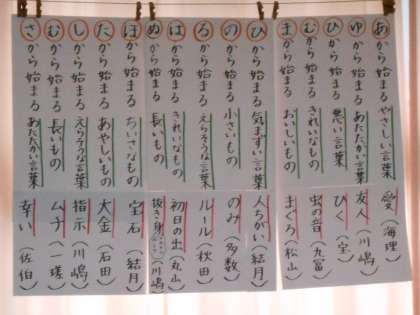 あから始まるやさしい言葉 愛(海理)
ゆから始まるあたたかい言葉 友人(川嶋)
ひから始まる悪い言葉 ひく(宝)
むから始まるきれいなもの 虫の音(九冨)
まから始まるおいしいもの まぐろ(松山)
ひから始まる気まずい言葉 人ちがい(結月)
のから始まる小さいもの のみ(多数)
るから始まるえらそうな言葉 ルール(秋田)
はから始まるきれいなもの 初日の出(丸山)
ぬから始まる長いもの 抜き身(川嶋)
ほから始まるちいさなもの 宝石(結月)
たから始まるあやしいもの 大金(石田)
しから始まるえらそうな言葉 指示(川嶋)
むから始まる長いもの ムチ(一瑳)
さから始まるあたたかい言葉 幸い(佐伯)